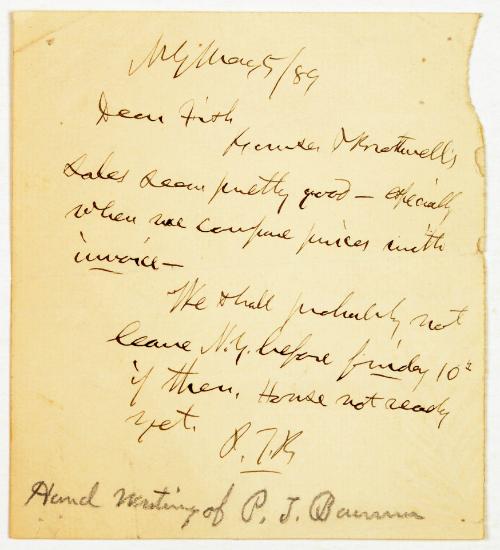 N.Y. May 5/89
Dear Fish
Hunter & Rothwell's
sales seem pretty good — especially
when we compare prices with
invoice —
We shall probably not
leave N.Y. before friday 10th
if then. House not ready
yet.
P. T. B
Hand writing of P. T. Barnum